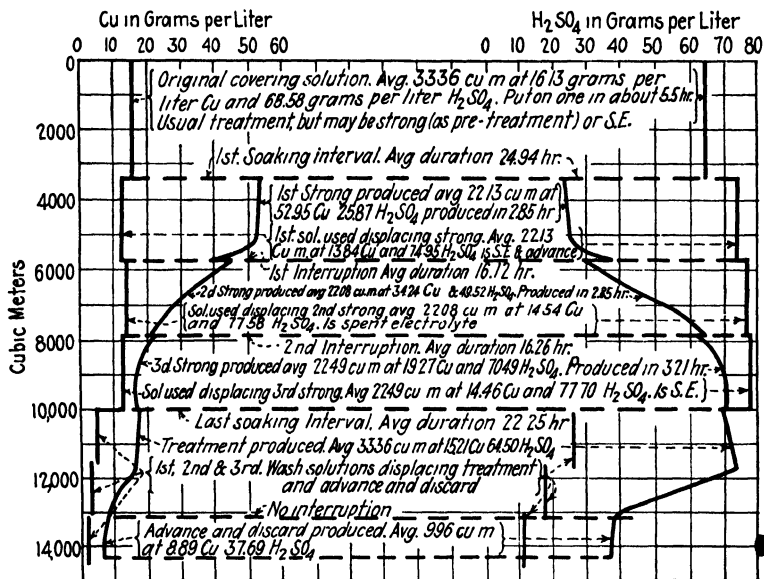 Cu in Grams per Liter
H2SO4 in Grams per Liter
0 10 20 30 40 50 60
0 10 20 30 40 50 60 70 80
Cubic Meters
0
2000
4000
6000
8000
10,000
12,000
14,000
Original covering solution. Avg. 3336 cu m at 16.13 grams per
liter Cu and 68.58 grams per liter H2SO4. Put on one in about 5.5 hr.
Usual treatment, but may be strong (as pre-treatment) or S.E.
1st. Soaking interval. Avg duration 24.94 hr.
1st Strong produced avg 22.13 cu m at
52.95 Cu 25.87 H2SO4 produced in 2.85 hr
1st sol. used displacing strong. Avg. 22.13
Cu m at 13.84 Cu and 74.95 H2SO4 is S.E. & advance
1st Interruption Avg duration 16.12 hr.
2d Strong produced avg 22.08 cu m at 34.24 Cu & 49.52 H2SO4. Produced in 2.85 hr.
Sol. used displacing 2nd strong avg 22.08 cu m at 14.54 Cu
and 77.58 H2SO4. Is spent electrolyte
2nd Interruption. Avg duration 16.26 hr.
3d Strong produced avg 22.49 cu m at 19.27 Cu and 70.49 H2SO4. Produced in 3.21 hr.
Sol used displacing 3rd strong. Avg 22.49 cu m at 14.46 Cu and 77.70 H2SO4. Is S.E.
Last soaking Interval. Avg duration 22.25 hr
Treatment produced. Avg 3336 cu m at 15.21 Cu 64.50 H2SO4
1st, 2nd & 3rd. Wash solutions displacing treatment
and advance and discard
No interruption
Advance and discard produced. Avg. 996 cu m
at 8.89 Cu 37.69 H2SO4